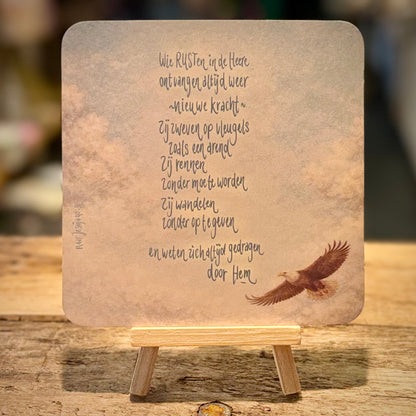 Wie RUSTen in de Heere
ontvangen altijd weer
~nieuwe kracht~
Zij zweven op vleugels
zoals een arend
Zij rennen
zonder moe te worden
Zij wandelen
zonder op te geven
en weten zich altijd gedragen
door Hem